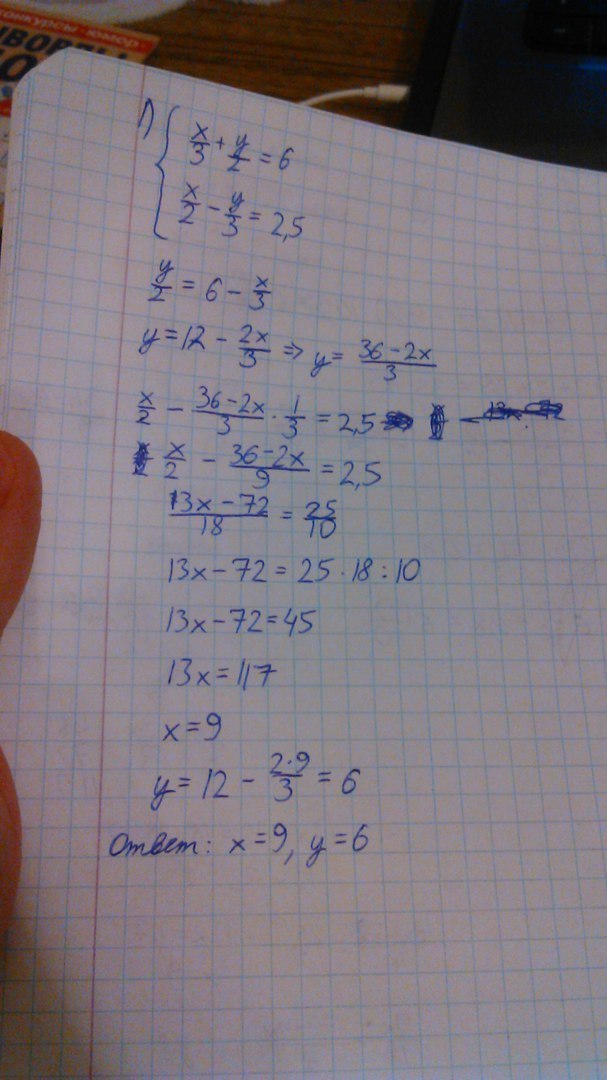 конкурсы · юмор ·
1) { x/3 + y/2 = 6
x/2 - y/3 = 2,5
y/2 = 6 - x/3
y = 12 - 2x/3 ⇒ y = (36 - 2x)/3
x/2 - (36-2x)/3 · 1/3 = 2,5
x/2 - (36-2x)/9 = 2,5
(13x - 72)/18 = 25/10
13x - 72 = 25 · 18 : 10
13x - 72 = 45
13x = 117
x = 9
y = 12 - (2·9)/3 = 6
Ответ: x = 9, y = 6